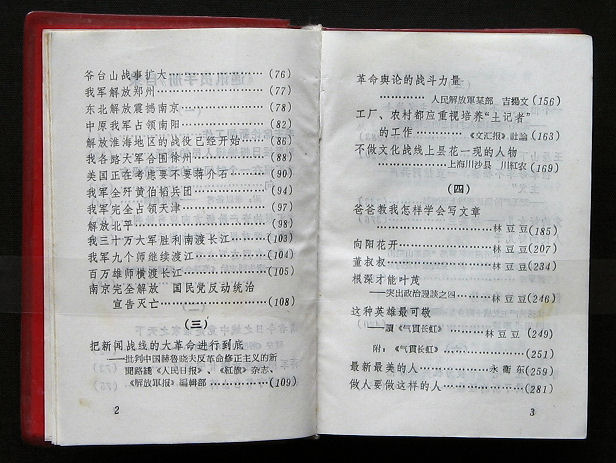 爷台山战事扩大……………(76)
我军解放郑州………………(77)
东北解放震撼南京…………(78)
中原我军占领南阳…………(82)
解放淮海地区的战役已经开始……(86)
我各路大军合围徐州………(88)
美国正在考虑要不要蒋介石……(90)
我军全歼黄伯韬兵团………(94)
我军完全占领天津…………(97)
解放北平……………………(98)
我三十万大军胜利南渡长江……(103)
我军九个师继续渡江………(104)
百万雄师横渡长江…………(105)
南京完全解放 国民党反动统治
宣告灭亡……………………(108)
(三)
把新闻战线的大革命进行到底
——批判中国赫鲁晓夫反革命修正主义的新
闻路綫《人民日报》、《紅旗》杂志、
《解放軍报》編輯部…………(109)
2
革命舆论的战斗力量
……………人民解放軍某部 吉揚文(156)
工厂、农村都应重视培养“土记者”
的工作…………《文汇报》社論(163)
不做文化战线上昙花一现的人物
……………上海川沙县 川紅农(169)
(四)
爸爸教我怎样学会写文章
……………………林豆豆(185)
向阳花开……………林豆豆(207)
董叔叔………………林豆豆(234)
根深才能叶茂
——突出政治漫談之四……林豆豆(246)
这种英雄最可敬
——讀《气貫长虹》……林豆豆(249)
附:《气貫长虹》……………(251)
最新最美的人………永衛东(259)
做人要做这样的人…………(281)
3